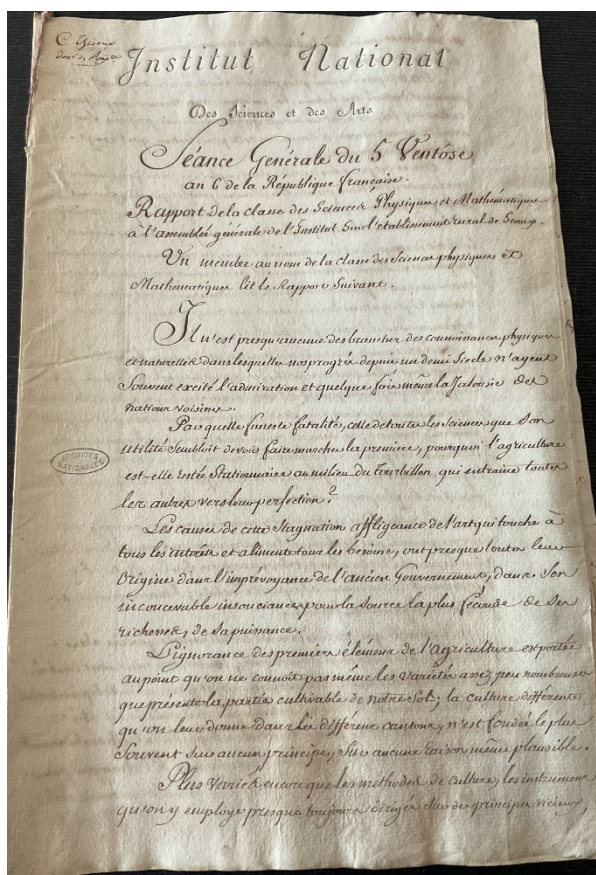 Institut National
Des Sciences et des Arts
Séance Générale du 5 Ventôse
an 6 de la République française.
Rapport de la classe des Sciences Physiques et Mathématiques
à l'assemblée générale de l'Institut Sur l'établissement rural de Sceaux.
Un membre au nom de la classe des Sciences physiques et
Mathématiques lit le Rapport Suivant.
Il n'est presqu'aucune des branches des connoissances physiques
et naturelles dans lesquelles nos progrès depuis un demi Siecle n'ayent
Souvent excité l'admiration et quelque fois même la Jalousie des
nations voisines.
Par quelle funeste fatalité, celle de toutes les Sciences que Son
utilité Sembloit devoir faire marcher la premiere, pourquoi l'agriculture
est-elle Restée Stationnaire au milieu du Tourbillon qui entraine toutes
les autres vers leur perfection?
ARCHIVES
NATIONALES
Les causes de cette Stagnation affligeante de l'art qui touche à
tous les interêts et alimente tous les besoins, ont presque toutes leur
Origine dans l'imprévoyance de l'ancien Gouvernement, dans Son
inconcevable insouciance pour la Source la plus féconde de Ses
richesses, de Sa puissance.
L'ignorance des premiers élémens de l'agriculture est portée
au point qu'on ne connoit pas même les Varietés assez peu nombreuses
que présente la partie cultivable de notre Sol; la culture différente
qu'on leur donne dans les différens cantons, n'est fondée le plus
Souvent Sur aucun principe, Sur aucune raison même plausible.
Plus Variés encore que les methodes de culture, les instrumens
qu'on y employe presque toujours dirigés Sur des principes vicieux,